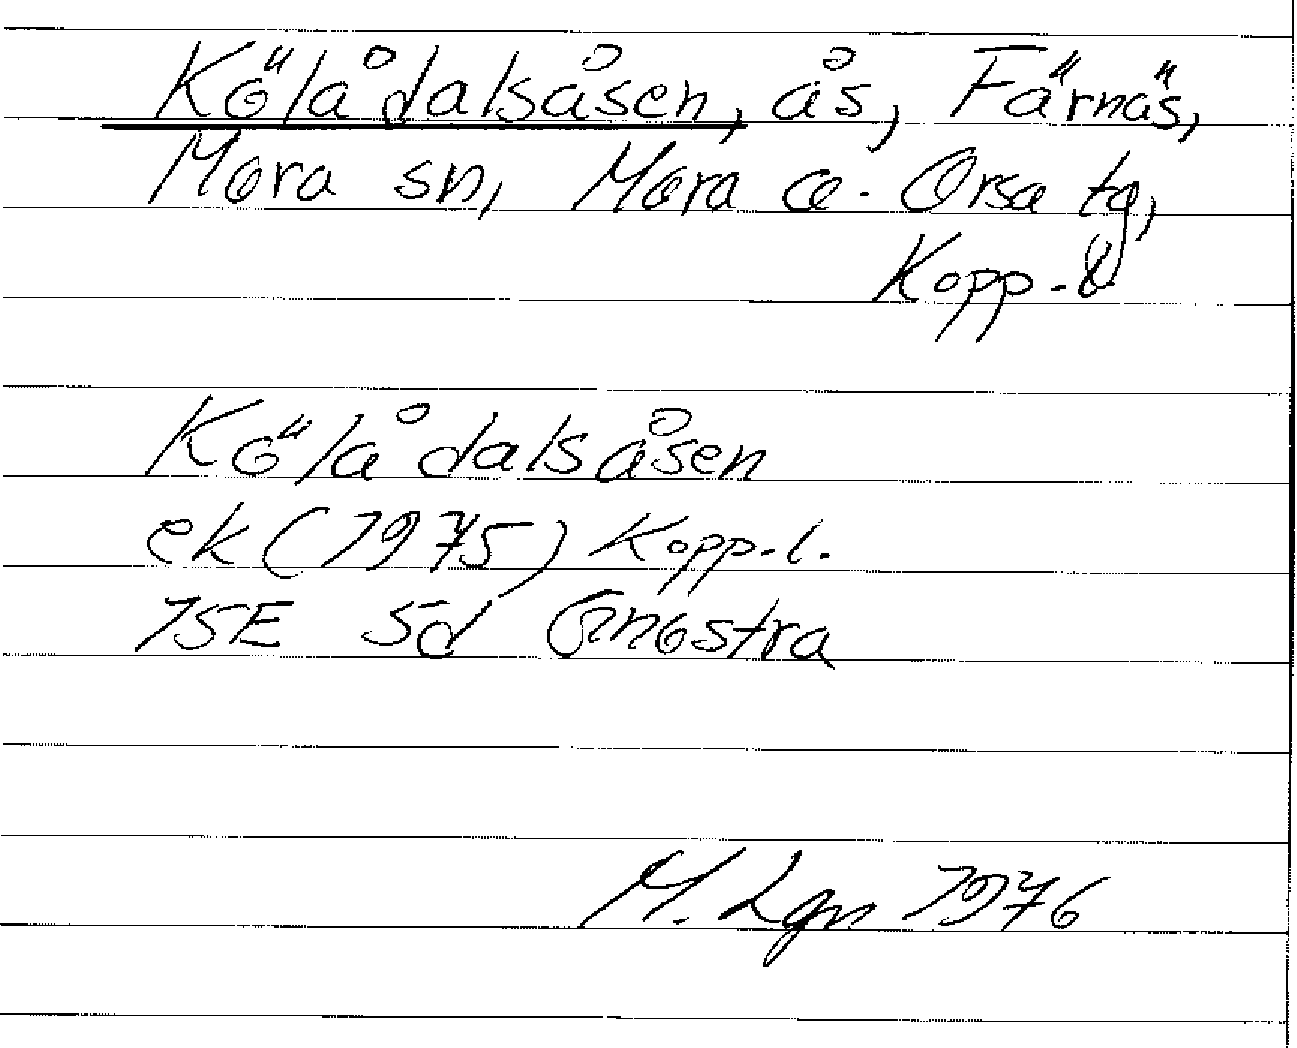 Kölådalsåsen, ås, Färnäs,
Mora sn, Mora o. Orsa tg,
Kopp. l.
Kölådalsåsen
ek (1975) Kopp. l.
15E 5d Gnostra
M. Lgn 1976